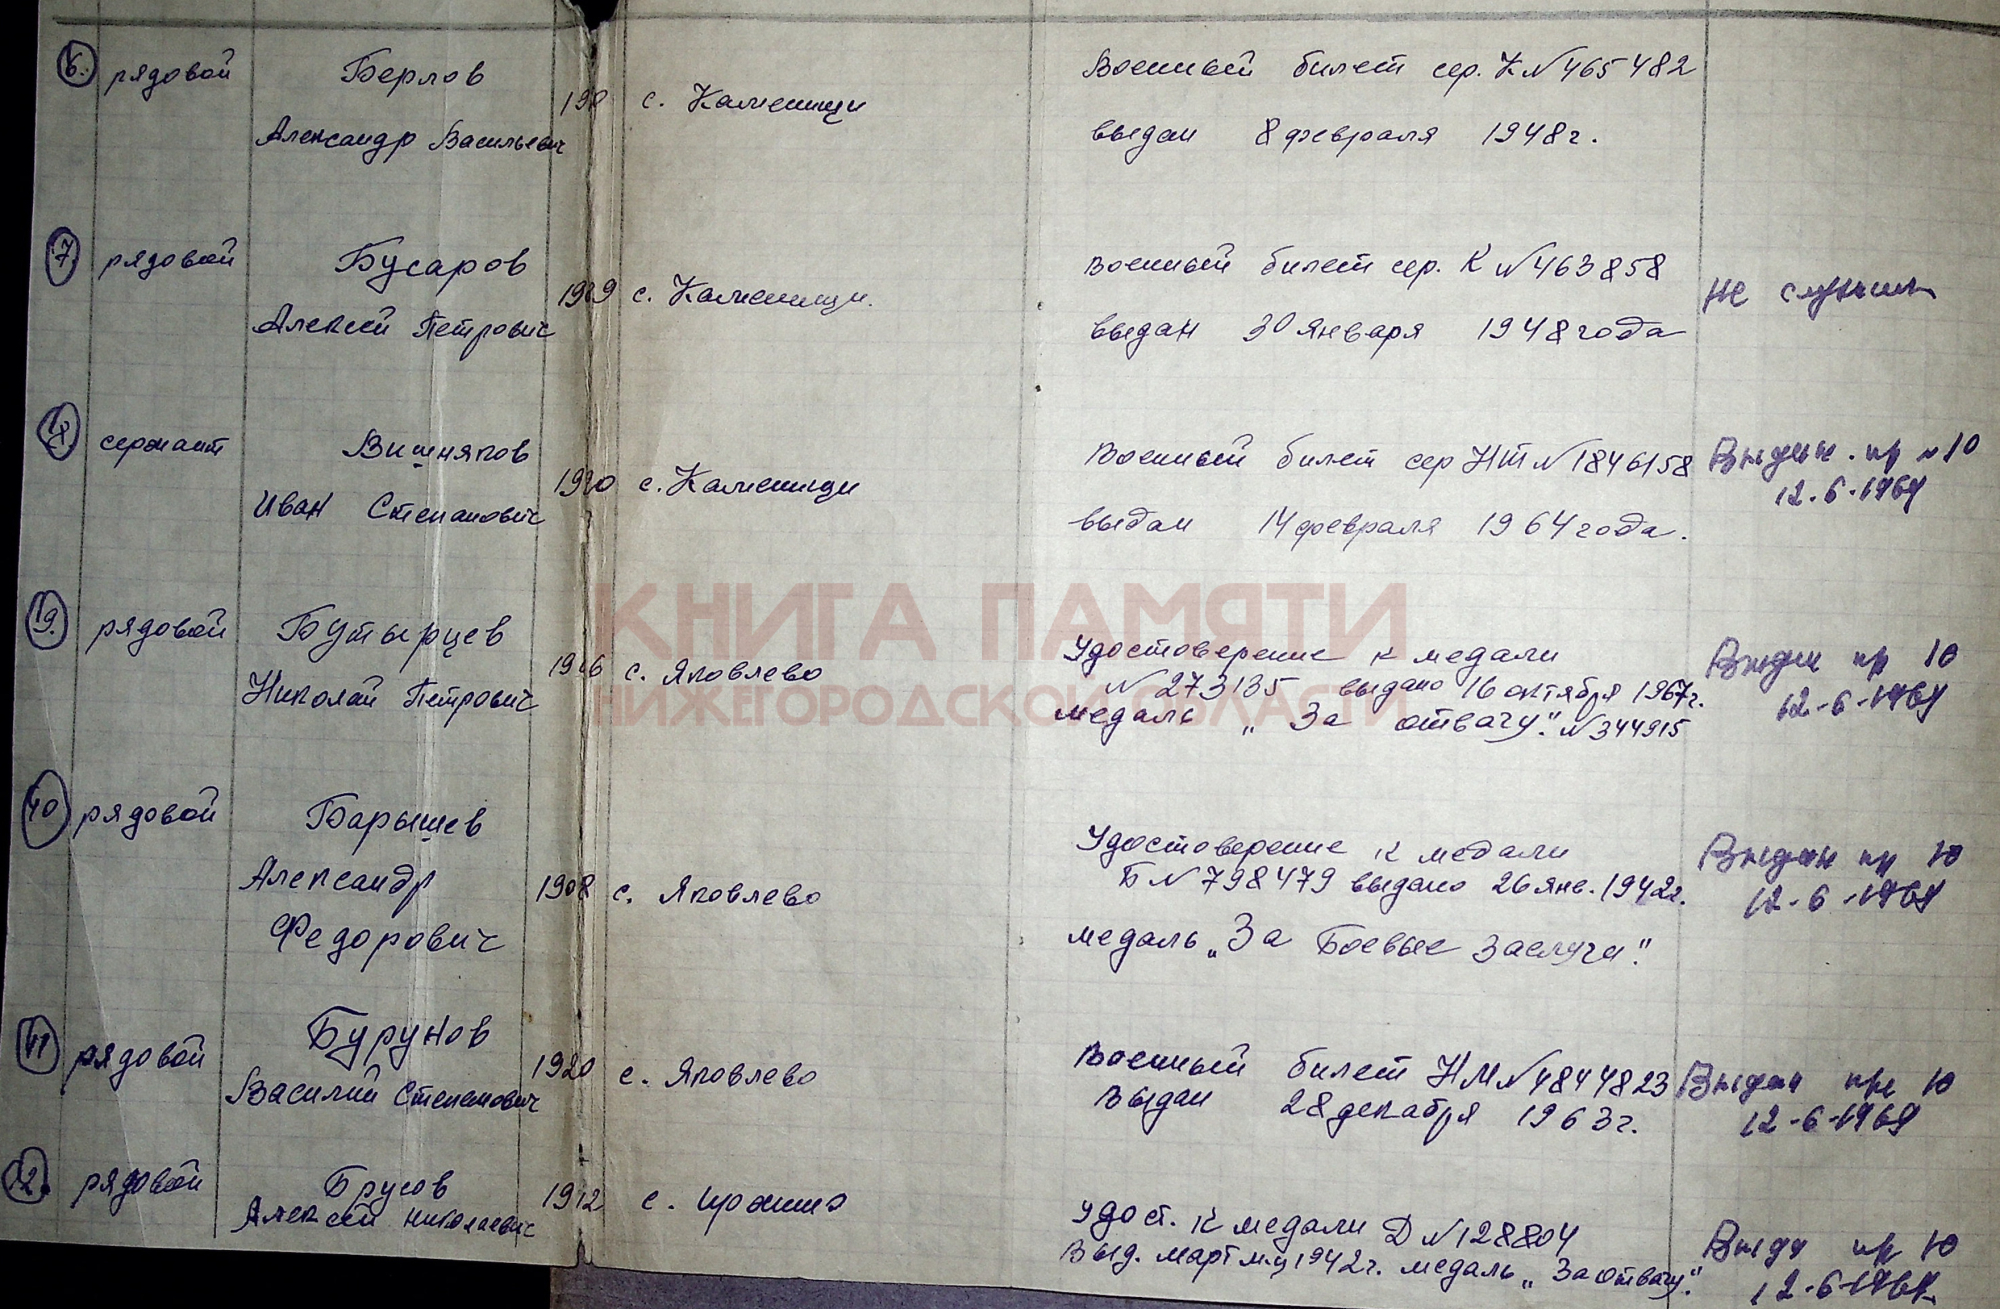 6. рядовой Берлов
Александр Васильевич
с. Каменищи
Военный билет сер. К №465482
выдан 8 февраля 1948г.
7. рядовой Бусаров
Алексей Петрович
с. Каменищи.
военный билет сер. К №463858
выдан 30 января 1948 года
не служил
сержант Вишняков
Иван Степанович
с. Каменищи
Военный билет сер НТ №1846158
выдан 14 февраля 1964 года.
Выдан. пр №10
12.6.1969
19. рядовой Бутырцев
Николай Петрович
с. Яковлево
Удостоверение к медали
№ 273135 выдано 16 октября 1967г.
медаль „За отвагу". №344915
Выдан пр 10
12-6-1969
КНИГА ПАМЯТИ
НИЖЕГОРОДСКОЙ ОБЛАСТИ
40 рядовой Барышев
Александр
Федорович
1908 с. Яковлево
Удостоверение к медали
Б №798479 выдано 26 янв. 1942г.
медаль „За Боевые Заслуги".
Выдан пр 10
12-6-1969
41 рядовой Бурунов
Василий Степанович
1920 с. Яковлево
Военный билет НМ №4844823
Выдан 28 декабря 1963г.
Выдан пр 10
12-6-1969
рядовой Брусов
Алексей Николаевич
1912 с.
Удост. к медали Д №128804
Выд. март м-ц 1942г. медаль „За отвагу".
Выдан пр 10
12-6-1969